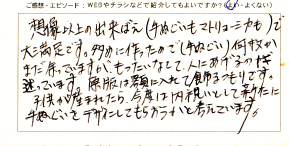 ご感想・エピソード：WEBやチラシなどで紹介してもよいですか？（よい・よくない）
想像以上の出来ばえ（手ぬぐいもマトリョーシカも）で
大満足です。多めに作ったので（手ぬぐい）何枚か
まだ余っていますが、もったいなくて、人にあげるのは
迷っています。原版は額に入れて飾るつもりです。
子供が産まれたら、今度は内祝いとして新たに
手ぬぐいをデザインしてもらおうかと考えています。